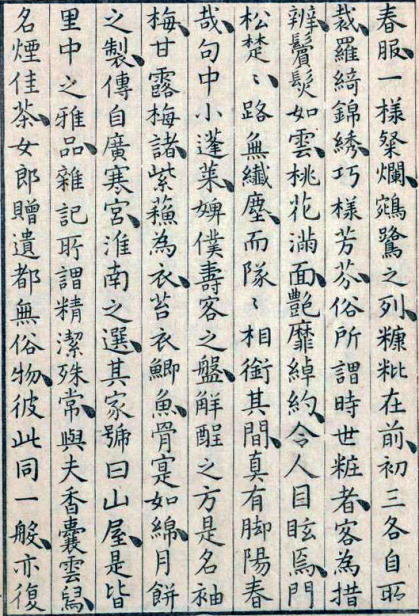 春服、一様粲爛、鵷鷺之列、糠粃在前、初三各自所
裁、羅綺錦綉、巧様芳芬、俗所謂時世粧者、客為措
辨、鬢髮如雲、桃花滿面、艷靡綽約、令人目眩焉、門
松楚〻、路無纖塵、而隊〻相銜其間、真有脚陽春
哉、句中小蓬萊、婢僕壽客之盤、解酲之方、是名袖
梅、甘露梅、諸紫蘓為衣、苔衣鯽魚、骨寔如綿、月餅
之製、傳自廣寒宮、淮南之選、其家號曰山屋、是皆
里中之雅品、雜記所謂精潔殊常、與夫香囊雲舄、
名煙佳茶、女郎贈遺、都無俗物、彼此同一般、亦復